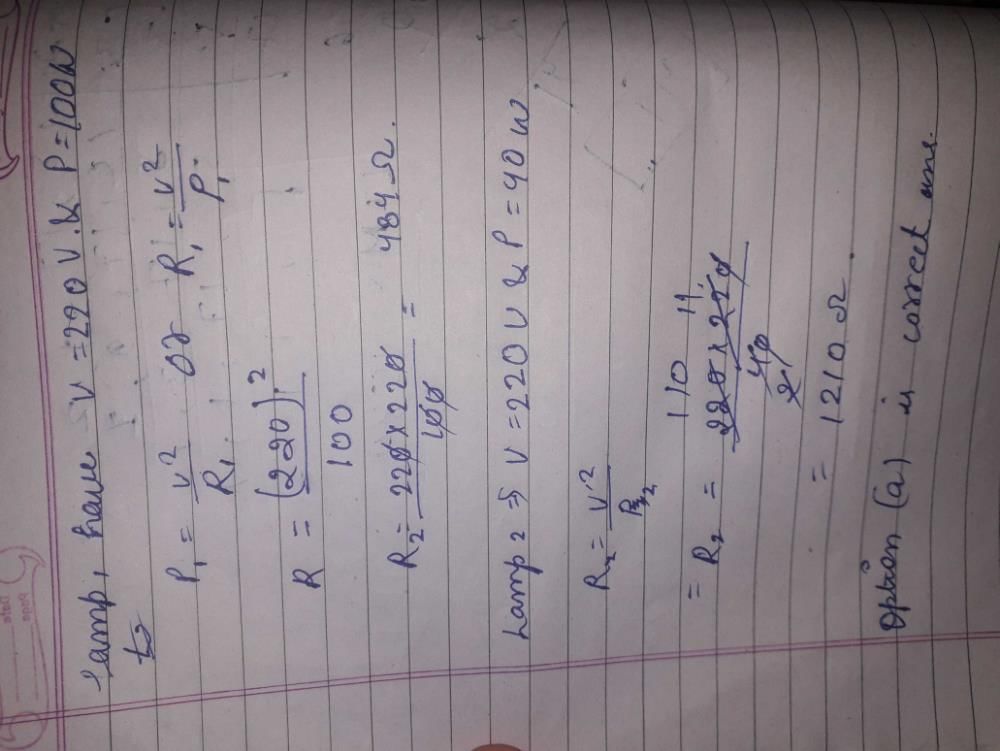 Lamp, have V = 220 V. & P = 100W
to
P₁ = V²/R₁. or R₁ = V²/P₁.
R = (220)²/100
R₂ = 220 x 220/100 = 484 Ω.
Lamp 2 ⇒ V = 220 V & P = 40 W
R₂ = V²/P₂
110 11
= R₂ = 220 x 220/40
2
= 1210 Ω
Option (a) is correct ans.
Page
Date